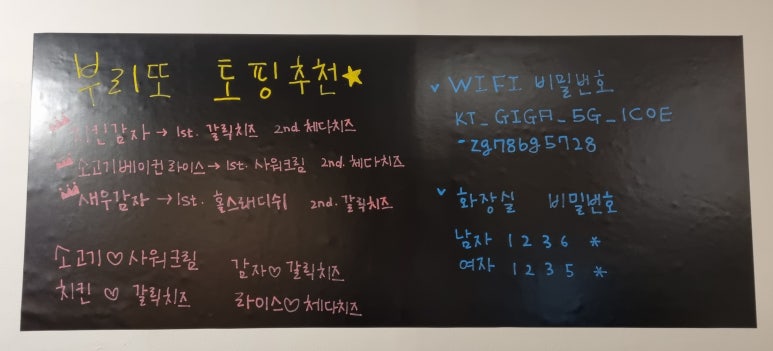 부리또 토핑추천★
치킨감자 → 1st. 갈릭치즈 2nd. 체다치즈
소고기베이컨라이스 → 1st. 사워크림 2nd. 체다치즈
새우감자 → 1st. 홀스래디쉬 2nd. 갈릭치즈
소고기♡사워크림 감자♡갈릭치즈
치킨 ♡ 갈릭치즈 라이스♡체다치즈
v WIFI 비밀번호
KT_GIGA_5G_1C0E
-zg78bg5728
v 화장실 비밀번호
남자 1236 *
여자 1235 *